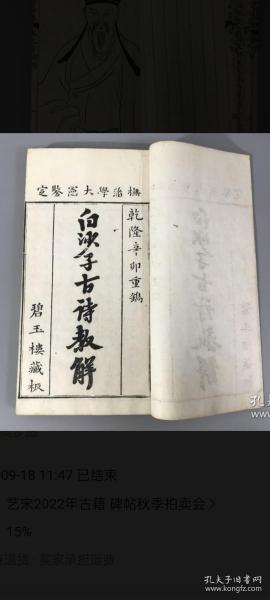 撫治學大憲鑒定
乾隆辛卯重鐫
白沙子古詩教解
碧玉樓藏板
孔
09-18 11:47 已结束
艺宋2022年古籍 碑帖秋季拍卖会 >
15%
持退货 · 买家承担运费
孔夫子旧书网